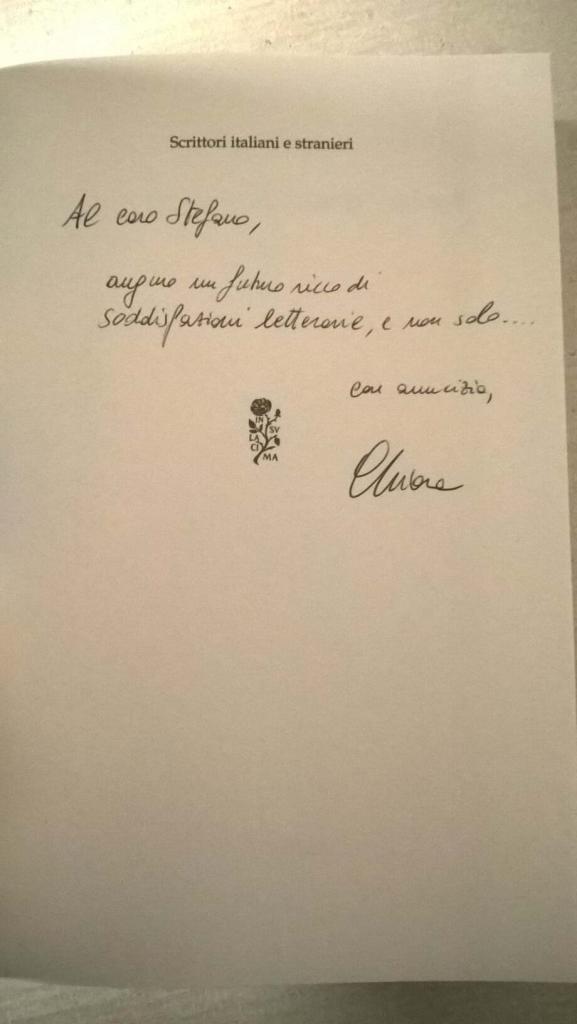 Scrittori italiani e stranieri
Al caro Stefano,
auguro un futuro ricco di
soddisfazioni letterarie, e non solo....
con amicizia,
IN
SV
LA
CI
MA
Chiara